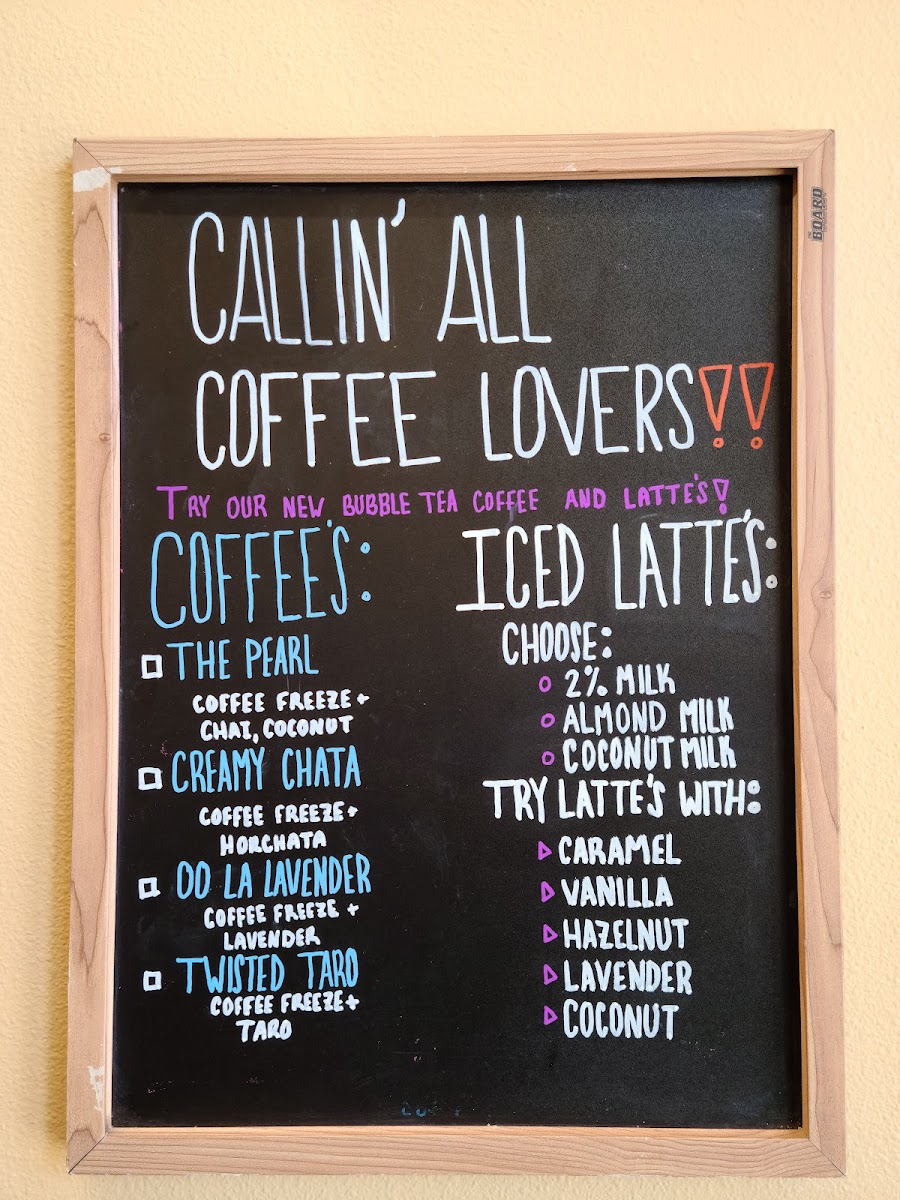 CALLIN' ALL
COFFEE LOVERS!!
TRY OUR NEW BUBBLE TEA COFFEE AND LATTE'S!
COFFEE'S:
THE PEARL
COFFEE FREEZE +
CHAI, COCONUT
CREAMY CHATA
COFFEE FREEZE +
HORCHATA
OO LA LAVENDER
COFFEE FREEZE +
LAVENDER
TWISTED TARO
COFFEE FREEZE +
TARO
ICED LATTE'S:
CHOOSE:
2% MILK
ALMOND MILK
COCONUT MILK
TRY LATTE'S WITH:
CARAMEL
VANILLA
HAZELNUT
LAVENDER
COCONUT
BOARD